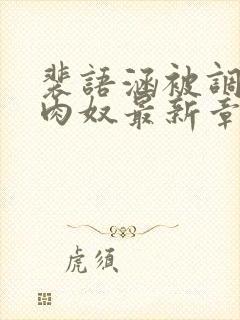 裴語涵被調
肉奴最新章
虎須